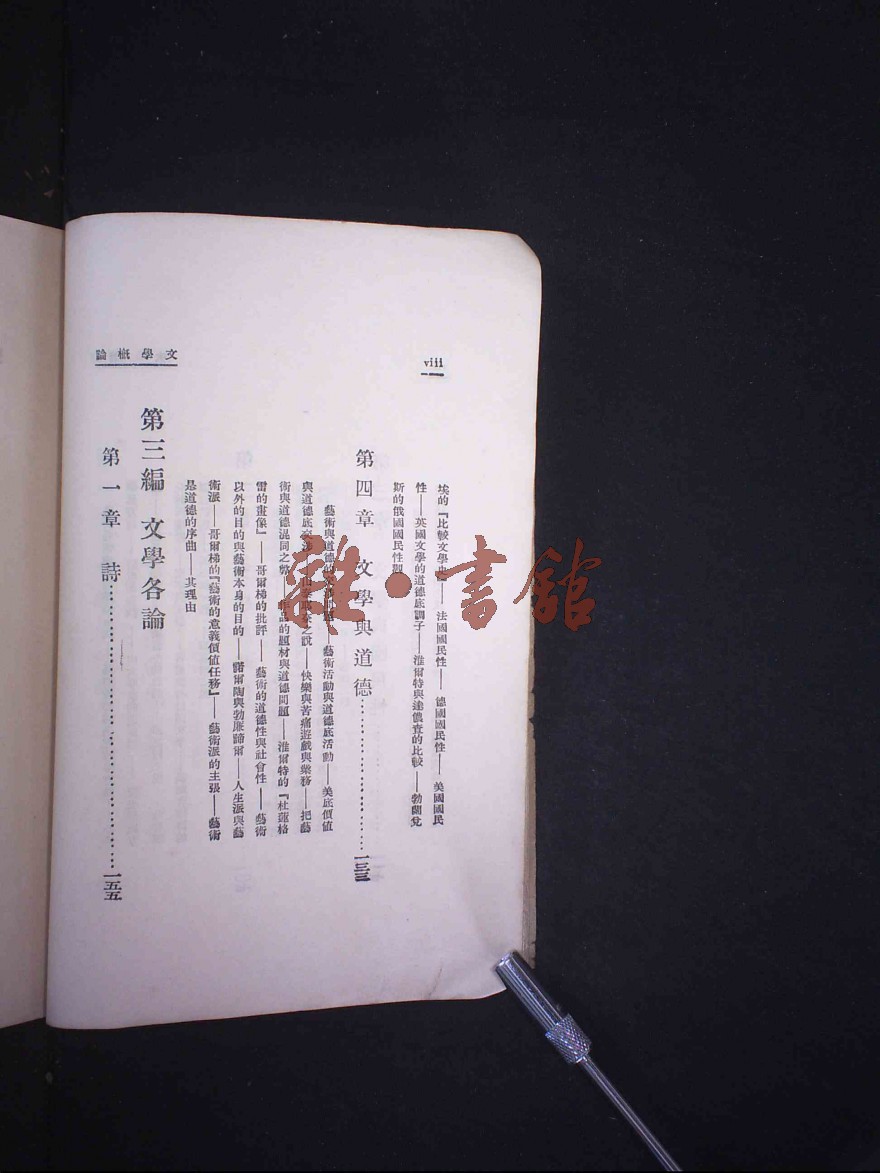 文學概論
viii
埃的『比較文學史』——法國國民性——德國國民性——美國國民
性——英國文學的道德底調子——淮爾特與達儂查的比較——勃蘭兌
斯的俄國國民性觀
第四章 文學與道德…………………一三三
藝術與道德的交涉問題——藝術活動與道德底活動——美底價值
與道德底——之說——快樂與苦痛遊戲與業務——把藝
術與道德混同之弊——作品的題材與道德問題——淮爾特的『杜蓮格
雷的畫像』——哥爾梯的批評——藝術的道德性與社會性——藝術
以外的目的與藝術本身的目的——諾爾陶與勃廉蹄爾——人生派與藝
術派——哥爾梯的『藝術的意義價值任務』——藝術派的主張——藝術
是道德的序曲——其理由
第三編 文學各論
第一章 詩…………………………一五五
雜·書館